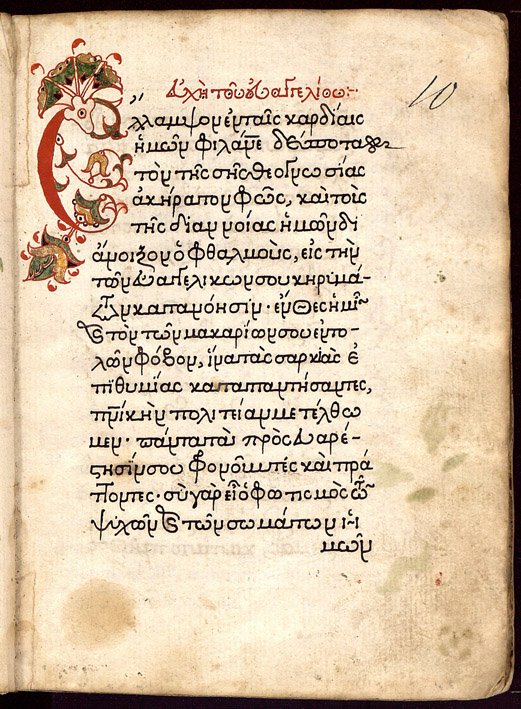 10
Εὐχὴ τοῦ εὐαγγελίου:-
Ἔλλαμψον ἐν ταῖς καρδίαις
ἡμῶν φιλάν̅ε δέσποτα
τὸν τῆς σῆς θεογνωσίας
ἀκήρατον φῶς, καὶ τοὺς
τῆς διανοίας ἡμῶν δι
άνοιξον ὀφθαλμοὺς, εἰς τὴν
τῶν εὐαγγελικῶν σου κηρυγμά-
των κατανόησιν· ἔνθες ἡμῖν
καὶ τὸν τῶν μακαρίων σου ἐντο-
λῶν φόβον, ἵνα τὰς σαρκικὰς ἐ
πιθυμίας καταπατήσαντες,
πν̅ικὴν πολιτείαν μετέλθω
μεν· πάντα τὰ πρὸς εὐαρέ-
στησίν σου φρονοῦντές καὶ πρά
ττοντες· σὺ γὰρ εἶ ὁ φωτισμὸς τῶν
ψυχῶν καὶ τῶν σωμάτων ἡ-
μῶν